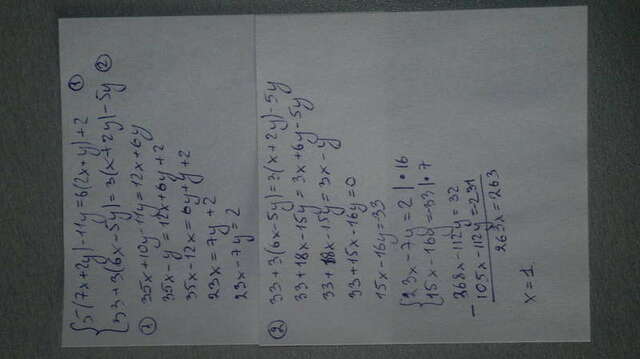 {5(7x+2y)-11y=6(2x+y)+2 ①
{33+3(6x-5y)=3(x+2y)-5y ②
① 35x+10y-11y=12x+6y
35x-y=12x+6y+2
35x-12x=6y+y+2
23x=7y+2
23x-7y=2
② 33+3(6x-5y)=3(x+2y)-5y
33+18x-15y=3x+6y-5y
33+18x-15y=3x-y
33+15x-16y=0
15x-16y=33
{23x-7y=2 |·16
{15x-16y=-33|·7
-368x-112y=32
105x-112y=-231
263x=263
x=1